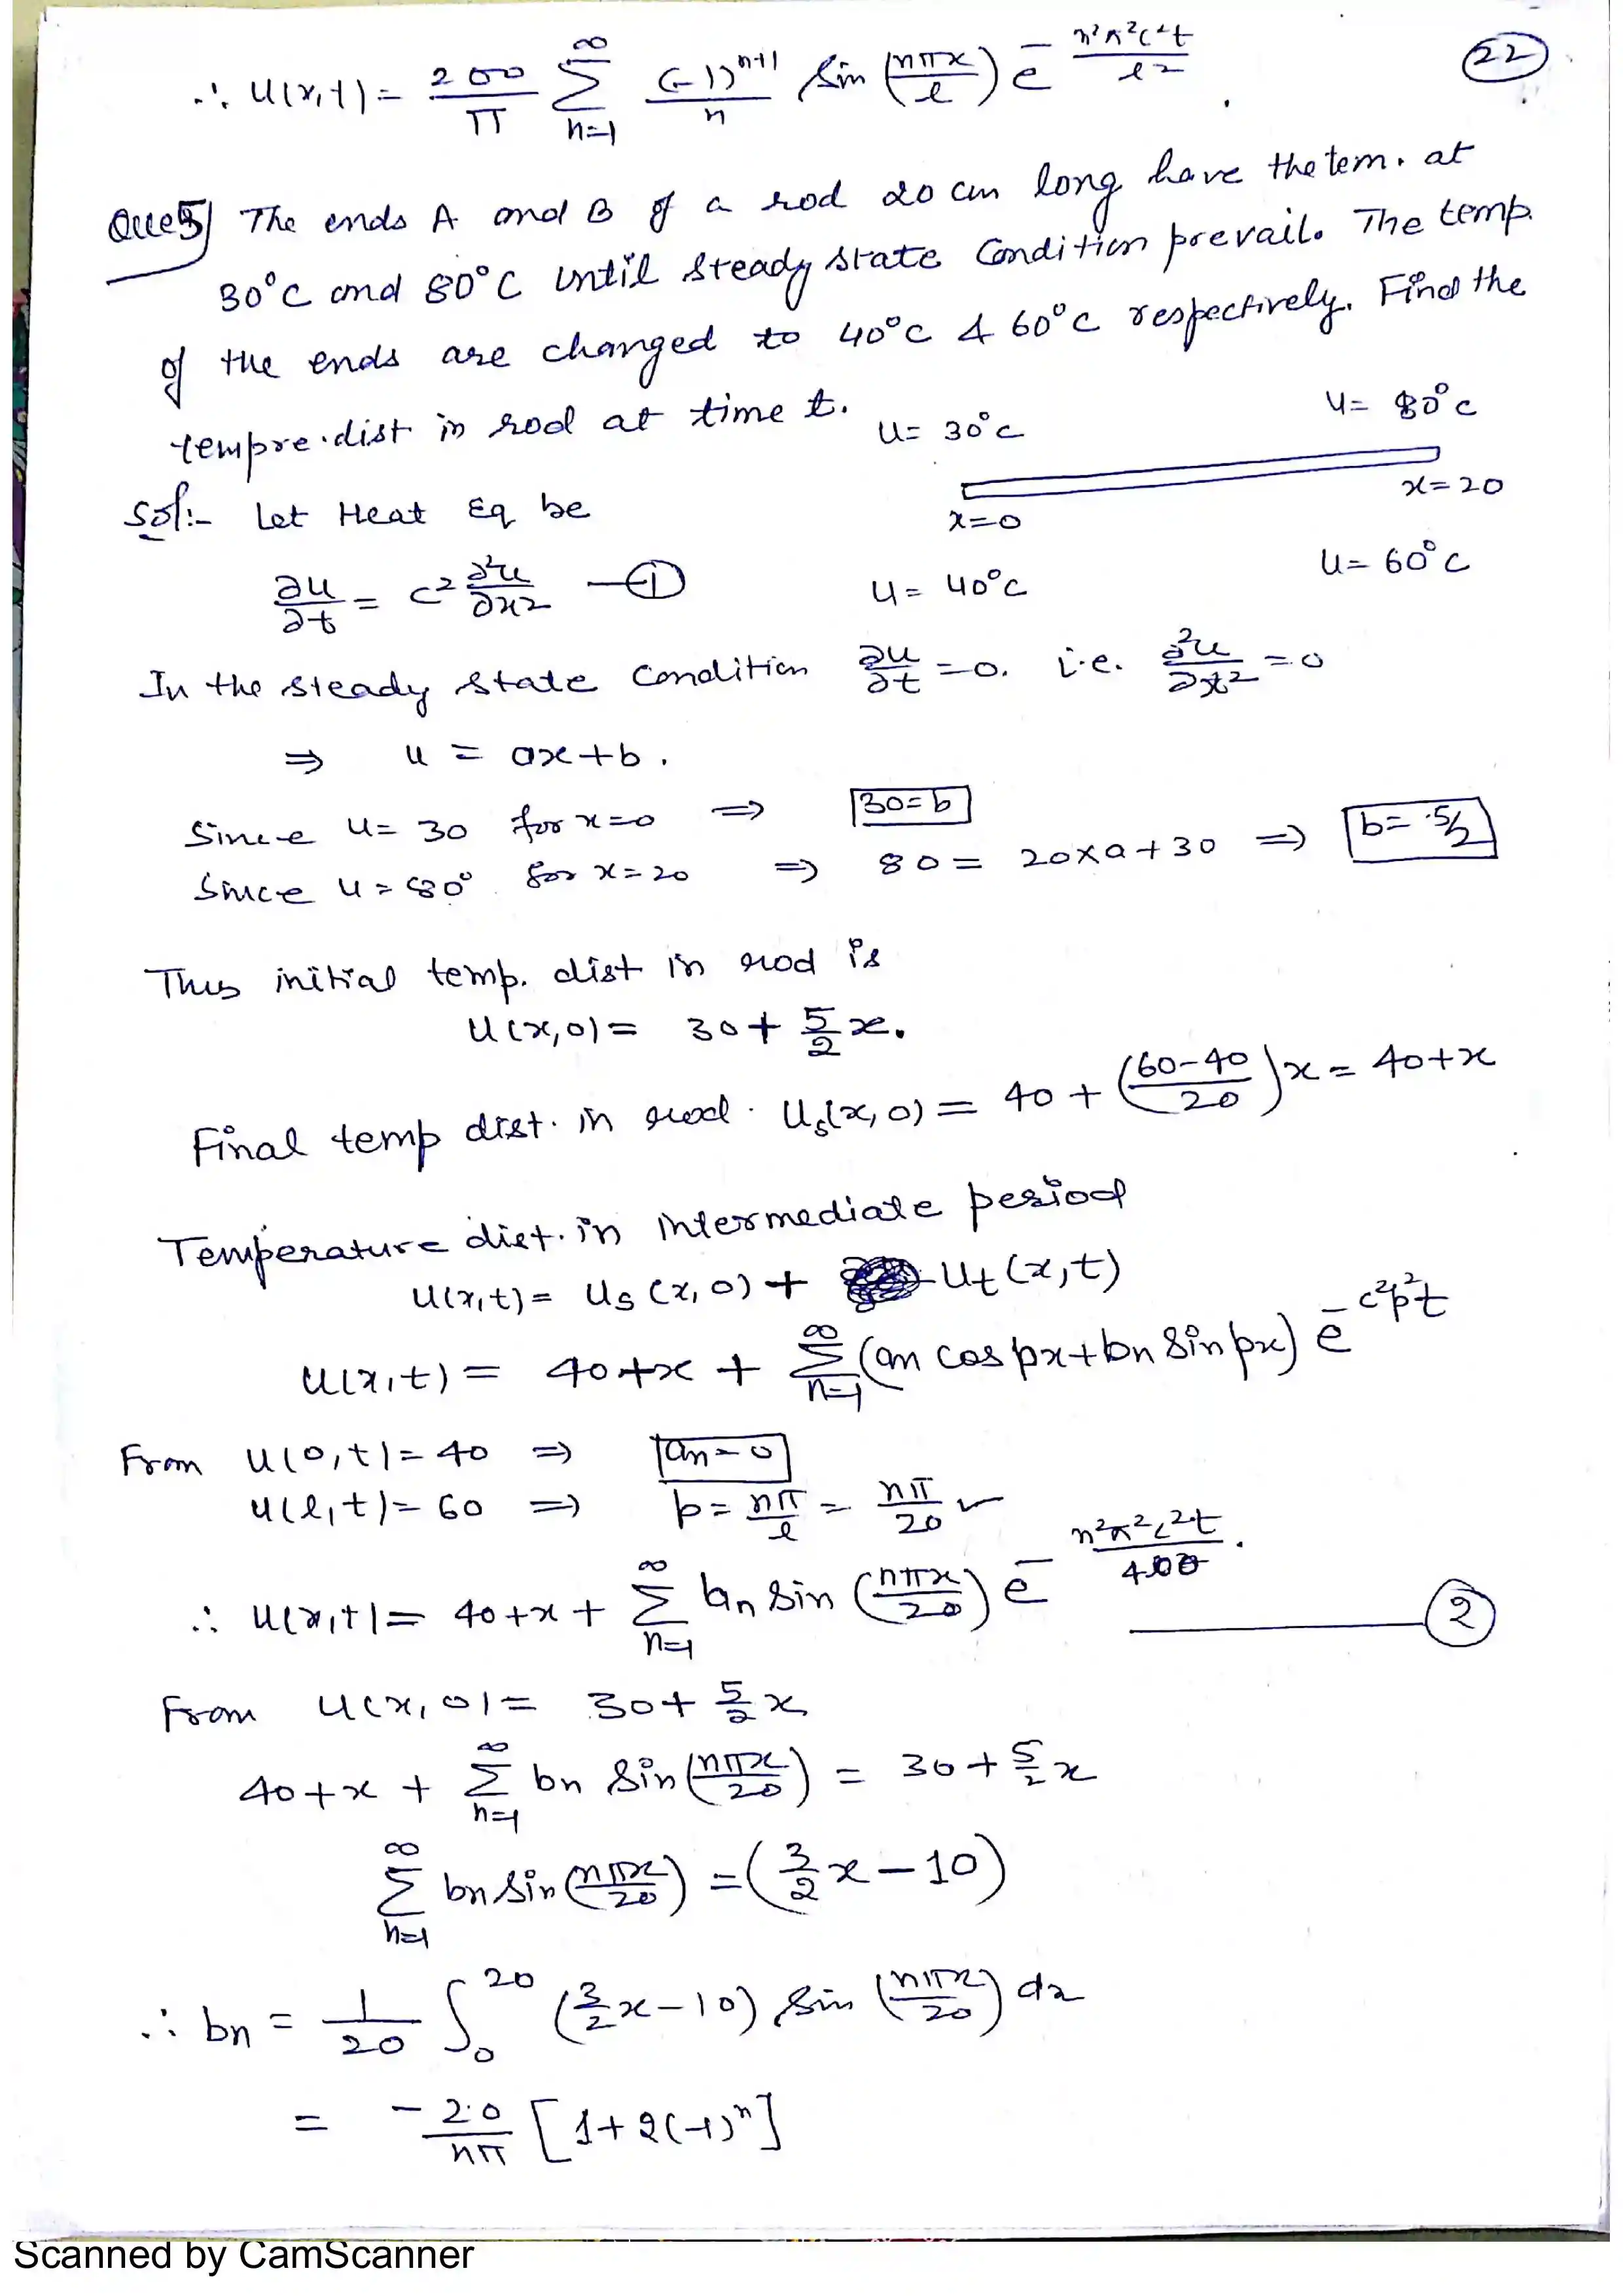 ∴ u(x,t) = 200/π ∑_{n=1}^{∞} (-1)^{n+1}/n sin (nπx/l) e^{- n²π²c²t/l²} .
(22)
Que5) The ends A and B of a rod 20 cm long have the tem. at
30°C and 80°C until steady state condition prevail. The temp.
of the ends are changed to 40°C & 60°C respectively. Find the
tempre.dist in rod at time t.
u= 30°c
u= 80°c
x=0
x=20
Sol:- Let Heat Eq be
∂u/∂t = c² ∂²u/∂x² —(1)
u= 40°c
u= 60°c
In the steady state condition ∂u/∂t =0. i.e. ∂²u/∂x² =0
⇒ u = ax+b.
Since u= 30 for x=0 ⇒ 30=b
Since u=80° for x=20 ⇒ 80= 20xa+30 ⇒ b= 5/2
Thus initial temp. dist in rod is
u(x,0)= 30+ 5/2 x.
Final temp dist. in rod. us(x,0) = 40 + (60-40/20)x = 40+x
Temperature dist. in intermediate period
u(x,t)= us(x,0) + ut(x,t)
u(x,t) = 40+x + ∑_{n=1}^{∞} (an cos px+bn sin px) e^{-c²p²t}
From u(0,t)=40 ⇒ an=0
u(l,t)=60 ⇒ p= nπ/l = nπ/20 ✓
∴ u(x,t)= 40+x+ ∑_{n=1}^{∞} bn sin (nπx/20) e^{- n²π²c²t/400} . —(2)
From u(x,0)= 30+ 5/2 x
40+x + ∑_{n=1}^{∞} bn sin (nπx/20) = 30+ 5/2 x
∑_{n=1}^{∞} bn sin (nπx/20) = (3/2 x-10)
∴ bn = 1/20 ∫_0^{20} (3/2 x-10) sin (nπx/20) dx
= - 20/nπ [1+2(-1)^n]
Scanned by CamScanner